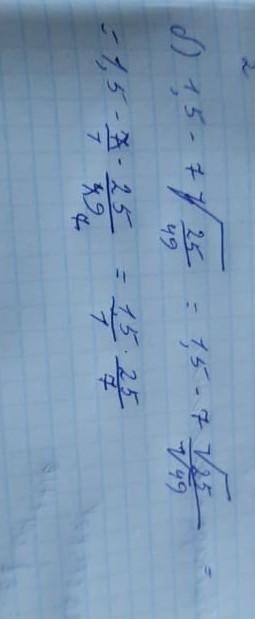 2
б) 1,5 - 7√25/49 = 1,5 - 7 √25/√49 =
= 1,5 - 7/1 · 25/49 7 = 1,5/1 · 25/7